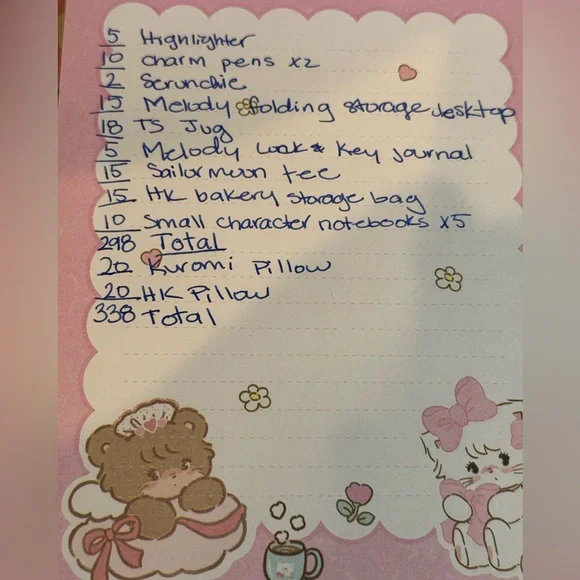 5 Highlighter
10 charm pens x2
2 Scrunchie
15 Melody folding storage desktop
18 TS Jug
5 Melody Lock & Key Journal
15 Sailormoon tee
15 HK bakery storage bag
10 Small character notebooks x5
298 Total
20 Kuromi Pillow
20 HK Pillow
338 Total